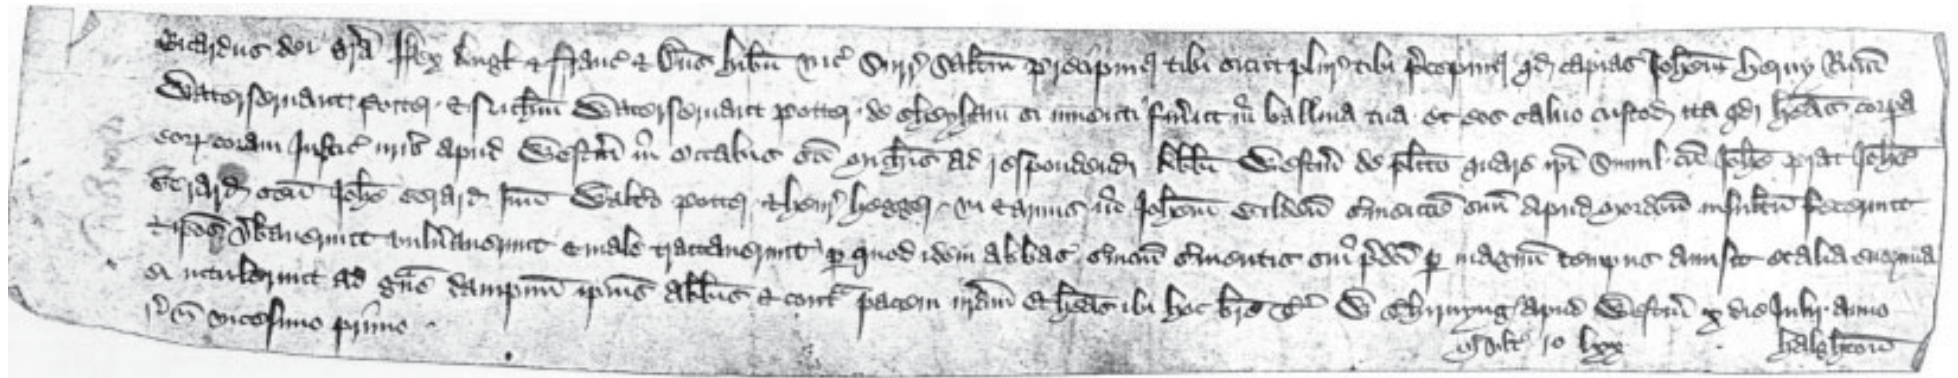 Ricardus dei gra Rex Angl & Franc & Dns Hibn vic Surr Saltm precipim tibi sicut plur tibi precepim qd capias Johem Hervy Ricm
Waterservant Potter & Michem Waterservant Potter de Cheyham si inventi fuerint in balliva tua et eos salvo custod ita qd heas corpa
eorp coram Justic nris apud Westm in Octabis sci Michis ad respondend Abbi Westm de plito quare ipi simul cum Johe Prat Johe
Gerard Johe Gerard Jun Waltro Potter & Henr Hogges vi & armis in Johem servientem suu apud Mordon insultu fecerunt
& ipsos vbaverunt vulnaverunt & male tractaverunt per quod idem Abbas servicm servientis sui pdci per magnu tempus amisit et alia enormia
ei intulerunt ad gve dampnum ipius Abbis & contra pacem nram Et heas ibi hoc bre T W Thirnyng apud Westm x die Julii anno
r n vicesimo primo
Ro lxx Halghton